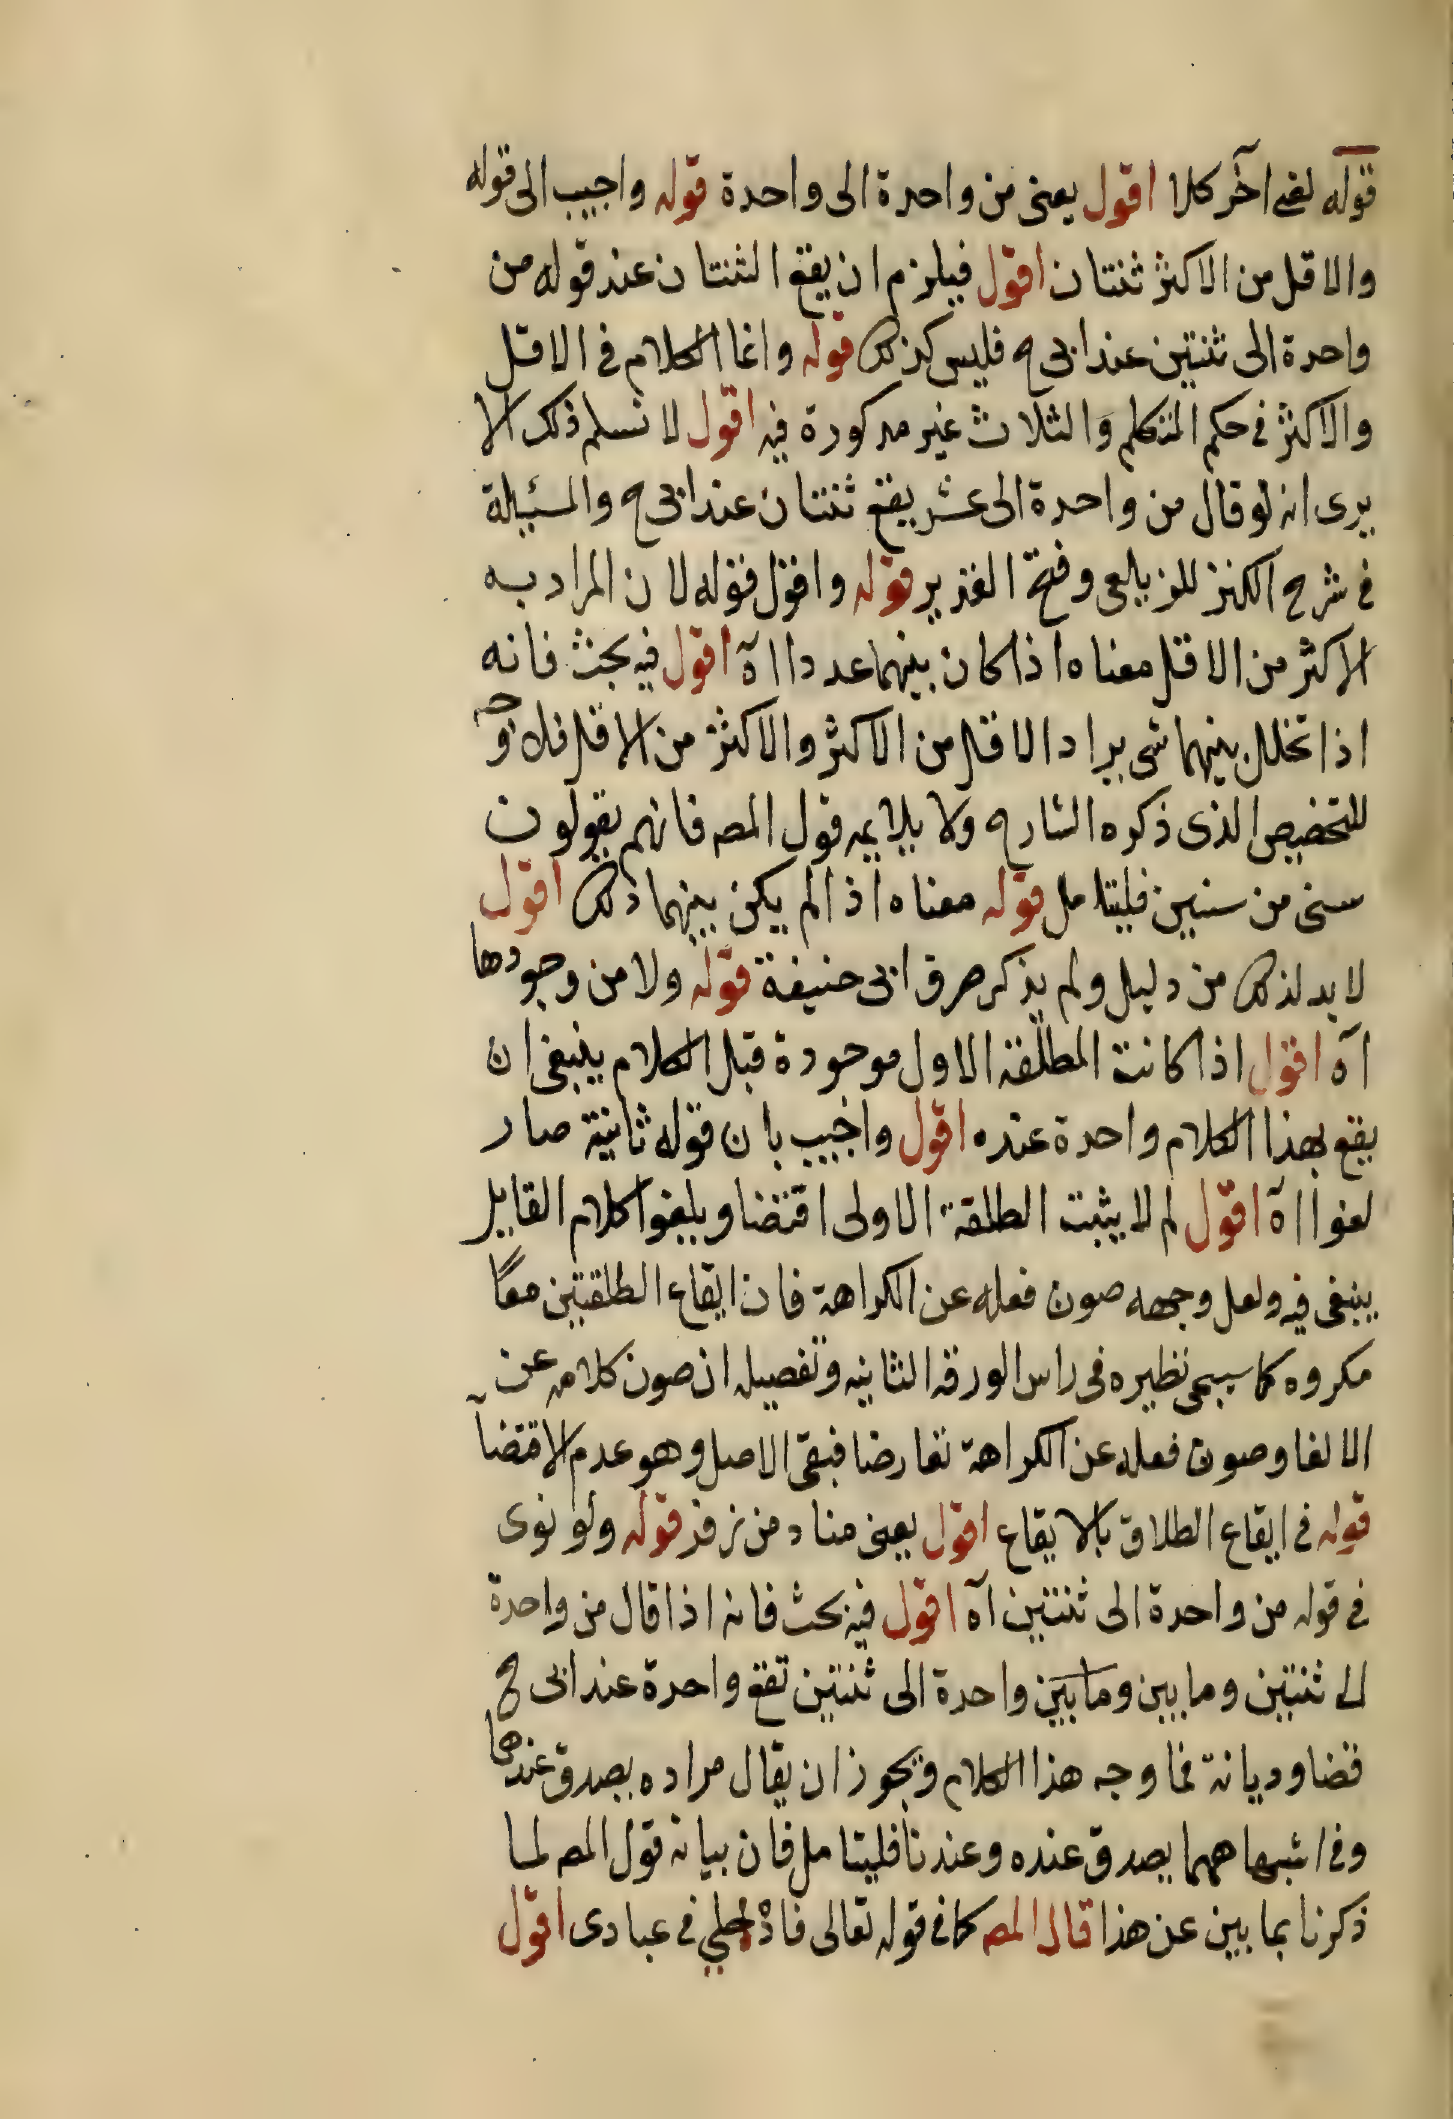 قوله لغى آخر كلا اقول يعنى من واحدة الى واحدة قوله واجيب الى قوله
والاقل من الاكثر ثنتان اقول فيلزم ان يقع الثنتان عند قوله من
واحدة الى ثنتين عند ابى ح فليس كذلك قوله وانما الكلام فى الاقل
والاكثر فى حكم المتكلم والثلاث غير مذكورة فيه اقول لا نسلم ذلك الا
يرى انه لو قال من واحدة الى عشر يقع ثنتان عند ابى ح والمسئلة
فى شرح الكنز للزيلعى وفتح القدير قوله واقول قوله لان المراد به
الاكثر من الاقل معناه اذا كان بينهما عددا اه اقول فيه بحث فانه
اذا تخلل بينهما شى يراد الاقل من الاكثر والاكثر من الاقل فلا وجه
للتخصيص الذى ذكره الشارح ولا يلايمه قول المصه فانهم يقولون
سنى من ستين فليتامل قوله معناه اذا لم يكن بينهما ذلك اقول
لا بد لذلك من دليل ولم يذكر صرق ابى حنيفة قوله ولا من وجودها
آه اقول اذا كانت المطلقة الاول موجودة قبل الكلام ينبغى ان
يقع بهذا الكلام واحدة عنده اقول واجيب بان قوله ثانية صار
لغوا اه اقول لم لا يثبت الطلقة الاولى اقتضا ويلغوا كلام القايل
ينبغى فيه ولعل وجهه صون فعله عن الكراهة فان ايقاع الطلقتين معًا
مكروه كما سيجى نظيره فى راس الورقه الثانيه وتفصيله ان صون كلامه عن
الالغا وصون فعله عن الكراهة تعارضا فبقى الاصل وهو عدم الاقتضآ
قوله فى ايقاع الطلاق بالايقاع اقول يعنى مناد من زفر قوله ولو نوى
فى قوله من واحدة الى ثنتين آه اقول فيه بحث فانه اذا قال من واحدة
الى ثنتين وما بين وما بين واحدة الى ثنتين تقع واحدة عند ابى ح
قضا وديانة فما وجه هذا الكلام ويجوز ان يقال مراده يصدق عندهما
وفى اشباههما يصدق عنده وعندنا فليتامل فان بيانه قول المصه لما
ذكرنا بما بين عن هذا قال المصه كما فى قوله تعالى فادخلي فى عبادى اقول